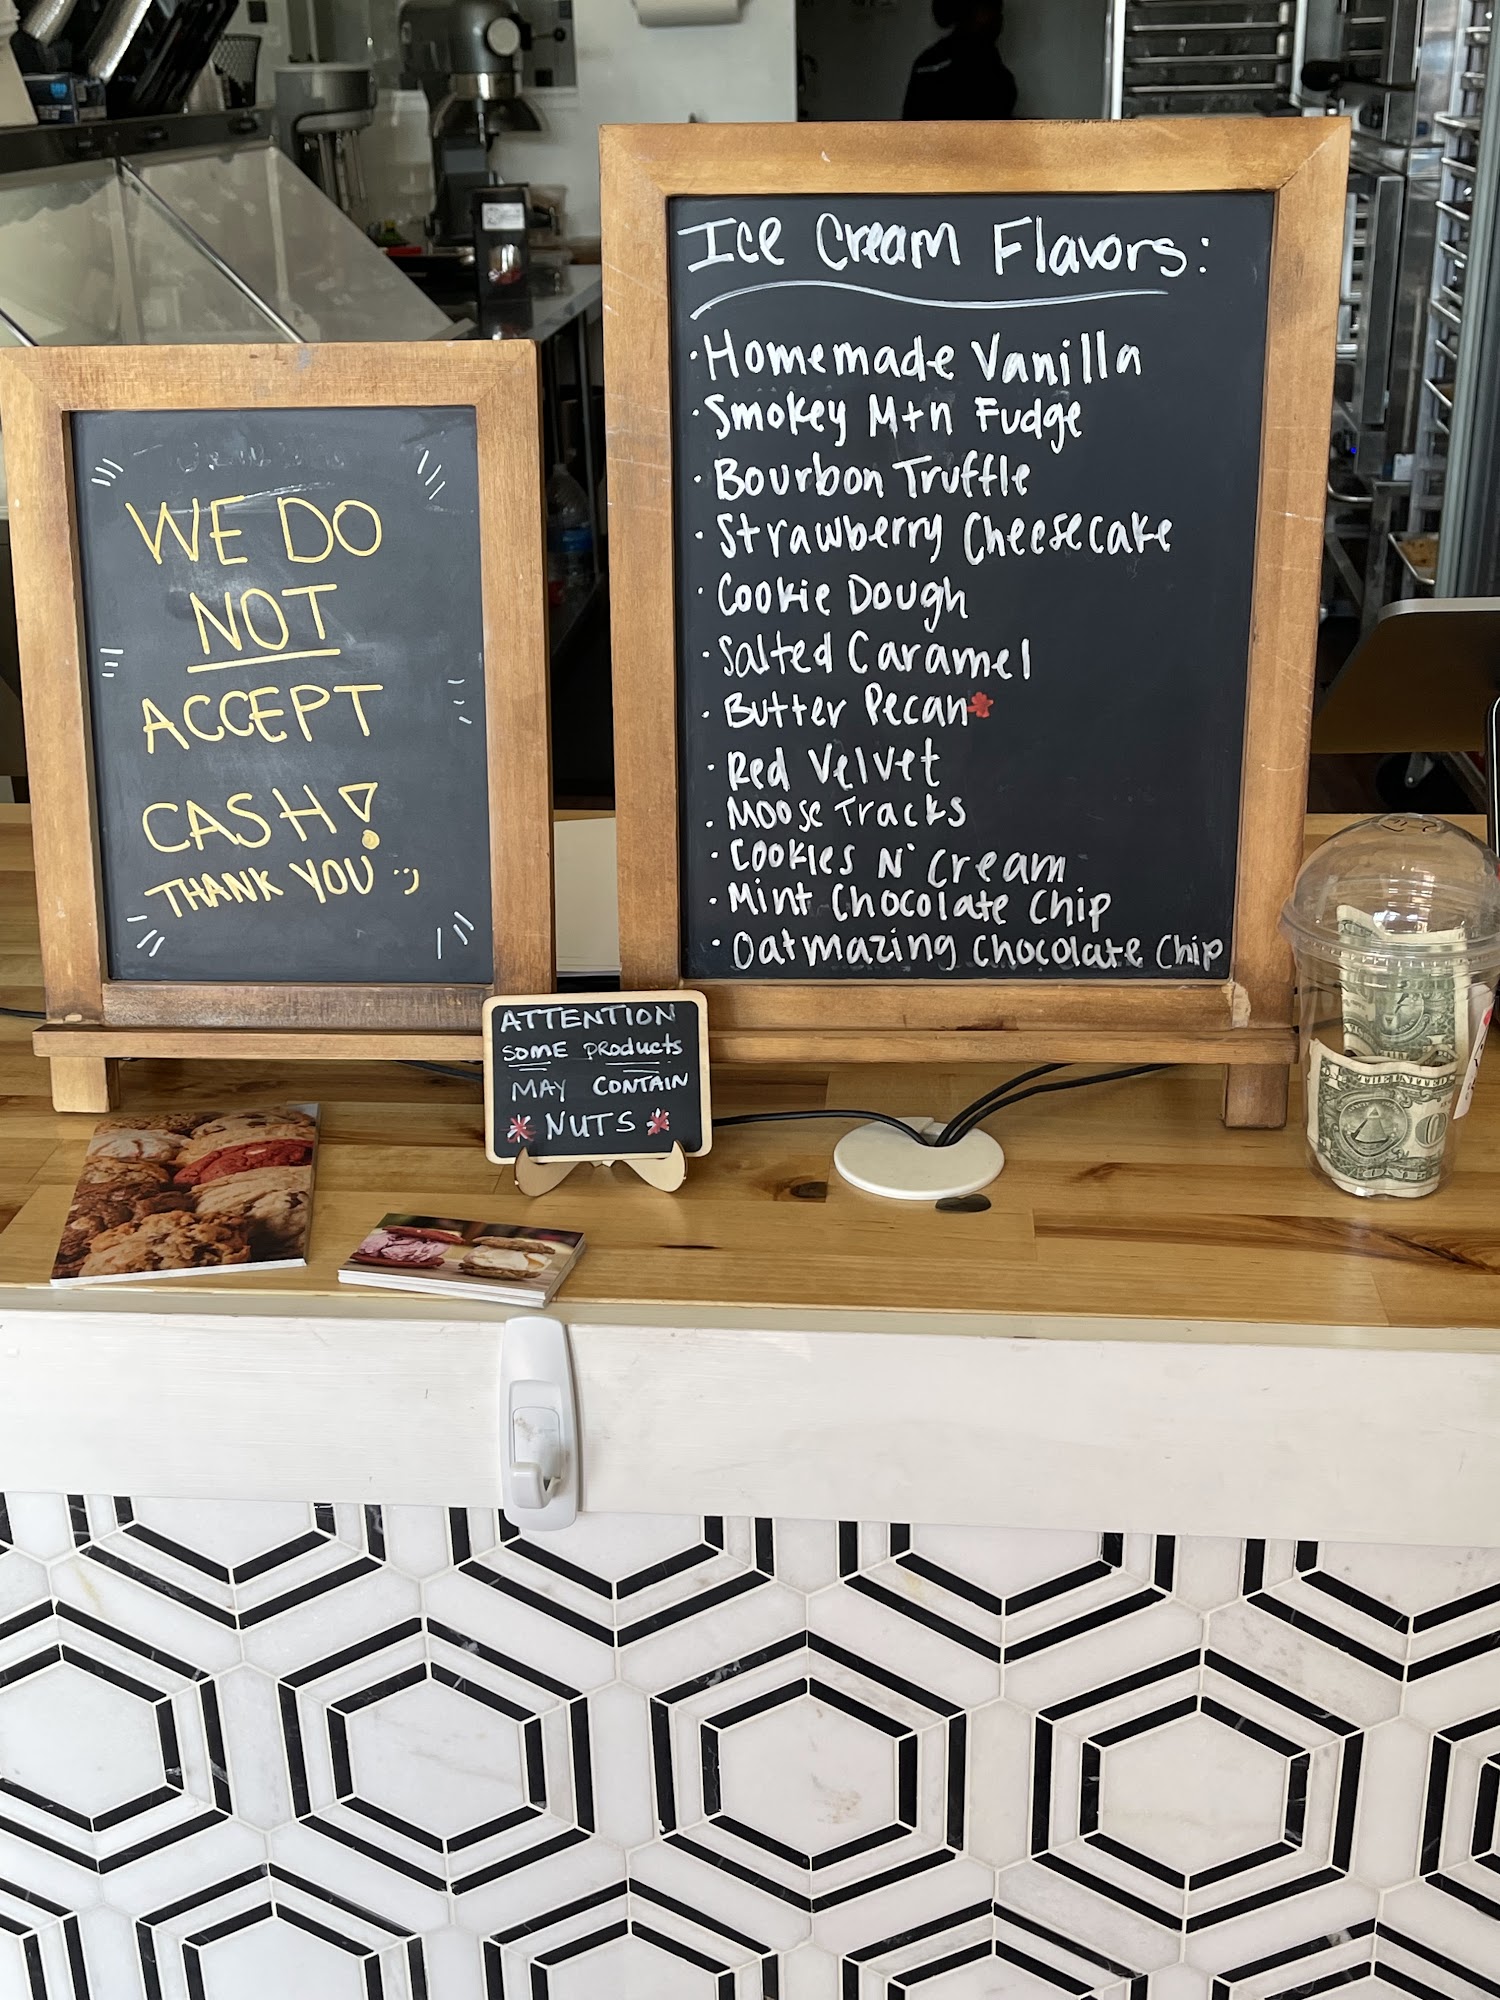 WE DO
NOT
ACCEPT
CASH!
THANK YOU :)
Ice Cream Flavors:
· Homemade Vanilla
· Smokey Mtn Fudge
· Bourbon Truffle
· Strawberry Cheesecake
· Cookie Dough
· Salted Caramel
· Butter Pecan*
· Red Velvet
· Moose Tracks
· Cookies N' Cream
· Mint Chocolate Chip
· Oatmazing Chocolate Chip
ATTENTION
SOME PRODUCTS
MAY CONTAIN
* NUTS *
THE UNITED
ONE